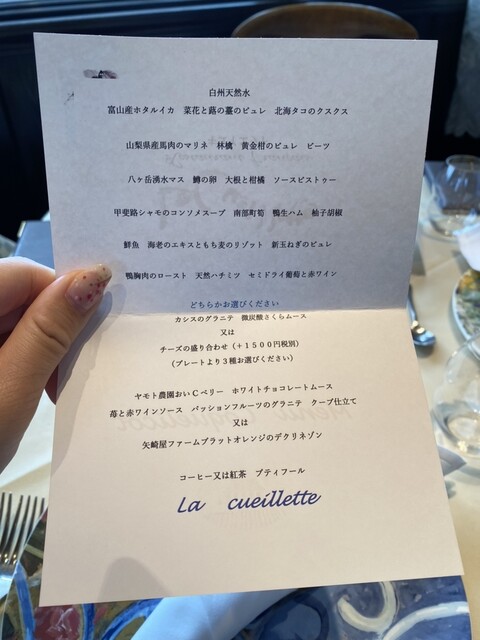 白州天然水
富山産ホタルイカ　菜花と蕗の薹のピュレ　北海タコのクスクス
山梨県産馬肉のマリネ　林檎　黄金柑のピュレ　ビーツ
八ヶ岳湧水マス　鱒の卵　大根と柑橘　ソースピストゥー
甲斐路シャモのコンソメスープ　南部町筍　鴨生ハム　柚子胡椒
鮮魚　海老のエキスともち麦のリゾット　新玉ねぎのピュレ
鴨胸肉のロースト　天然ハチミツ　セミドライ葡萄と赤ワイン
どちらかお選びください
カシスのグラニテ　微炭酸さくらムース
又は
チーズの盛り合わせ（＋１５００円税別）
（プレートより３種お選びください）
ヤモト農園おいＣベリー　ホワイトチョコレートムース
苺と赤ワインソース　パッションフルーツのグラニテ　クープ仕立て
又は
矢崎屋ファームブラットオレンジのデクリネゾン
コーヒー又は紅茶　プティフール
La cueillette